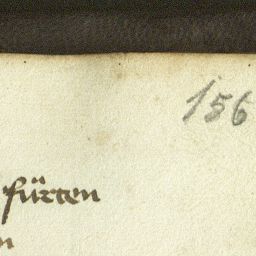 156
fürten
n